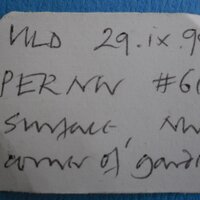 VLD 29.ix.99
PERNW #6
surface, NW
corner of gard